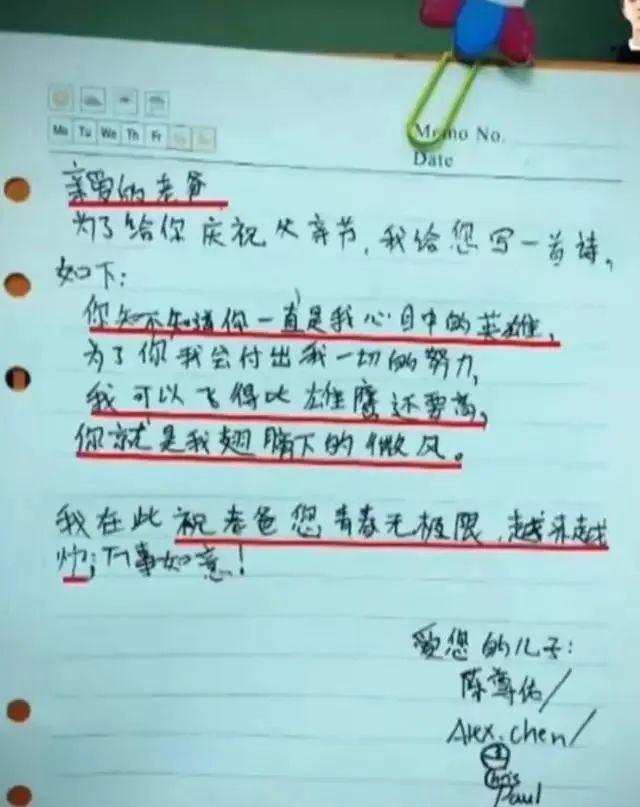 Mo Tu We Th Fr Sa Su
Memo No.
Date
亲爱的老爸
为了给你庆祝父亲节,我给您写一首诗。
如下:
你知不知道你一直是我心目中的英雄,
为了你我会付出我一切的努力,
我可以飞得比雄鹰还要高,
你就是我翅膀下的微风。
我在此祝老爸您青春无极限,越来越
帅;万事如意!
爱您的儿子:
陈尊佑/
Alex.chen/
Chris
Paul